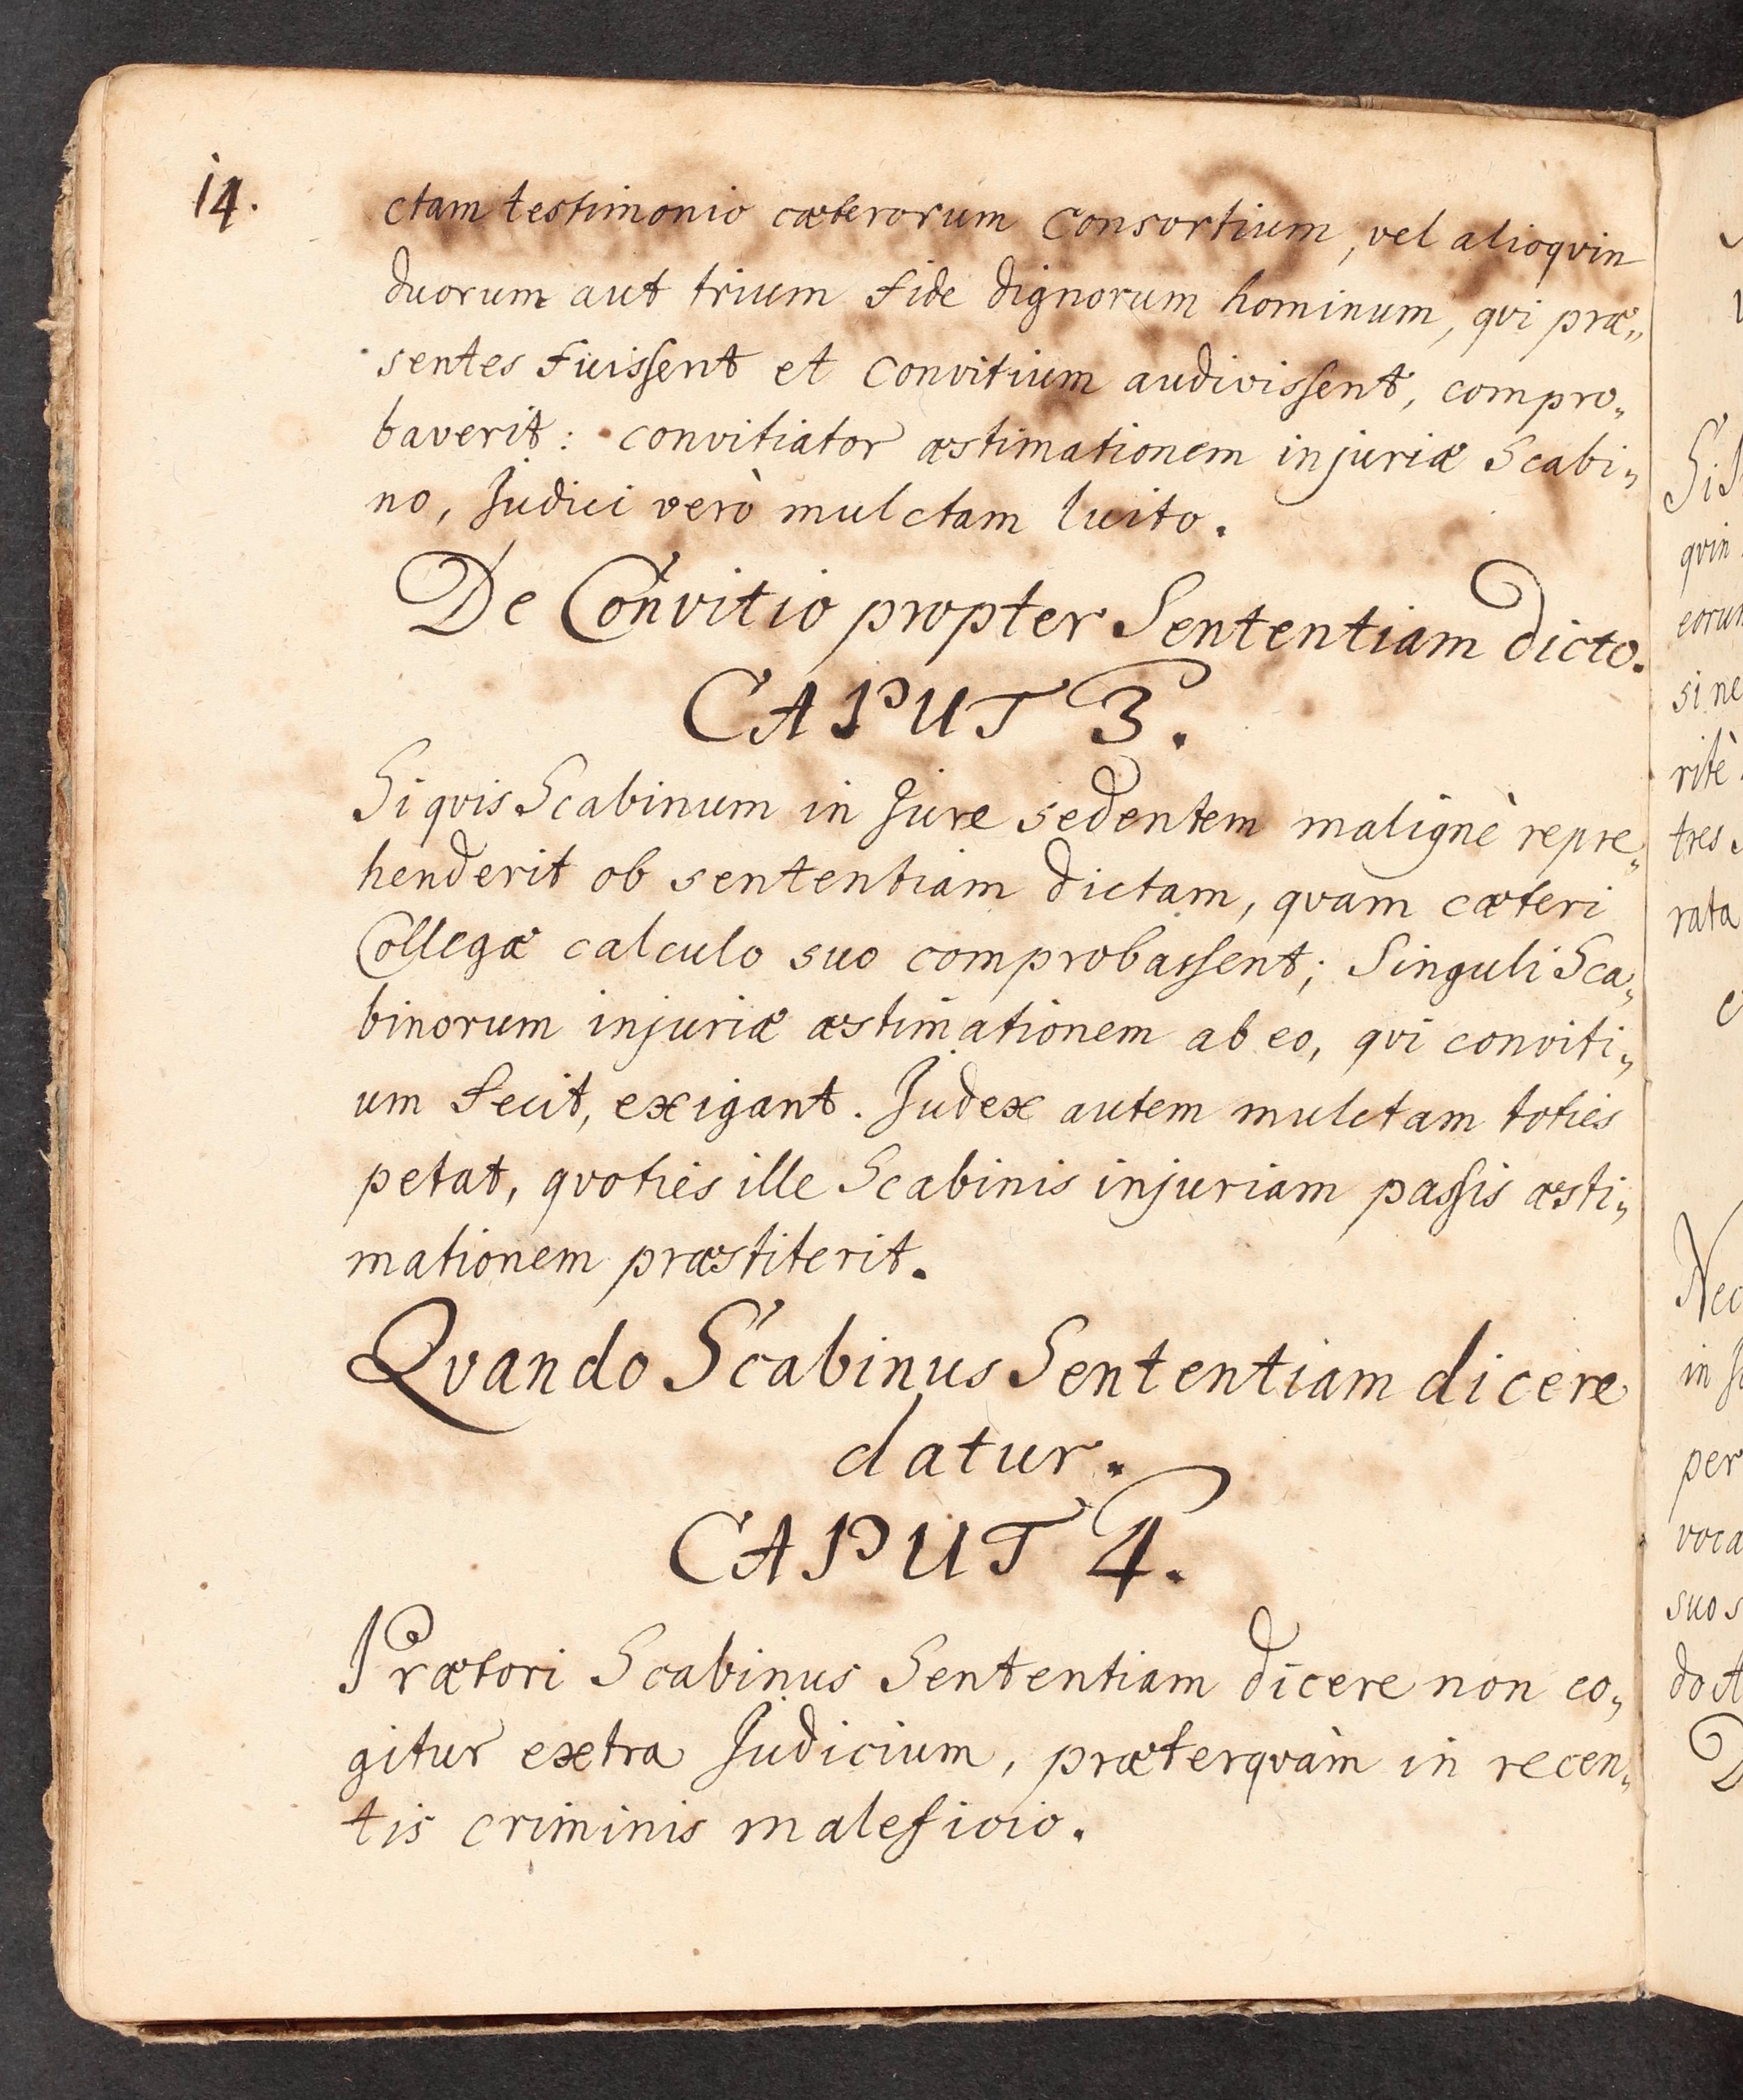 14.
ctam testimonio cæterorum Consortium, vel alioqvin
duorum aut trium fide dignorum hominum, qvi præ„
sentes fuissent et Convitium audivissent, compro„
baverit: convitiator æstimationem injuriæ Scabi„
no, Judici verò mulctam luito.
De Convitio propter Sententiam dicto.
CAPUT 3.
Si qvis Scabinum in Jure sedentem malignè repre„
henderit ob sententiam dictam, qvam cæteri
Collegæ calculo suo comprobassent; Singuli Sca„
binorum injuriæ æstimationem ab eo, qvi conviti„
um fecit, exigant. Judex autem mulctam toties
petat, qvoties ille Scabinis injuriam passis æsti„
mationem præstiterit.
Qvando Scabinus Sententiam dicere
datur.
CAPUT 4.
Prætori Scabinus Sententiam dicere non co„
gitur extra Judicium, præterqvàm in recen„
tis criminis maleficio.
qvin
eorum
sine
ritè
tres
rata
Nec
in
per
voca
suo s